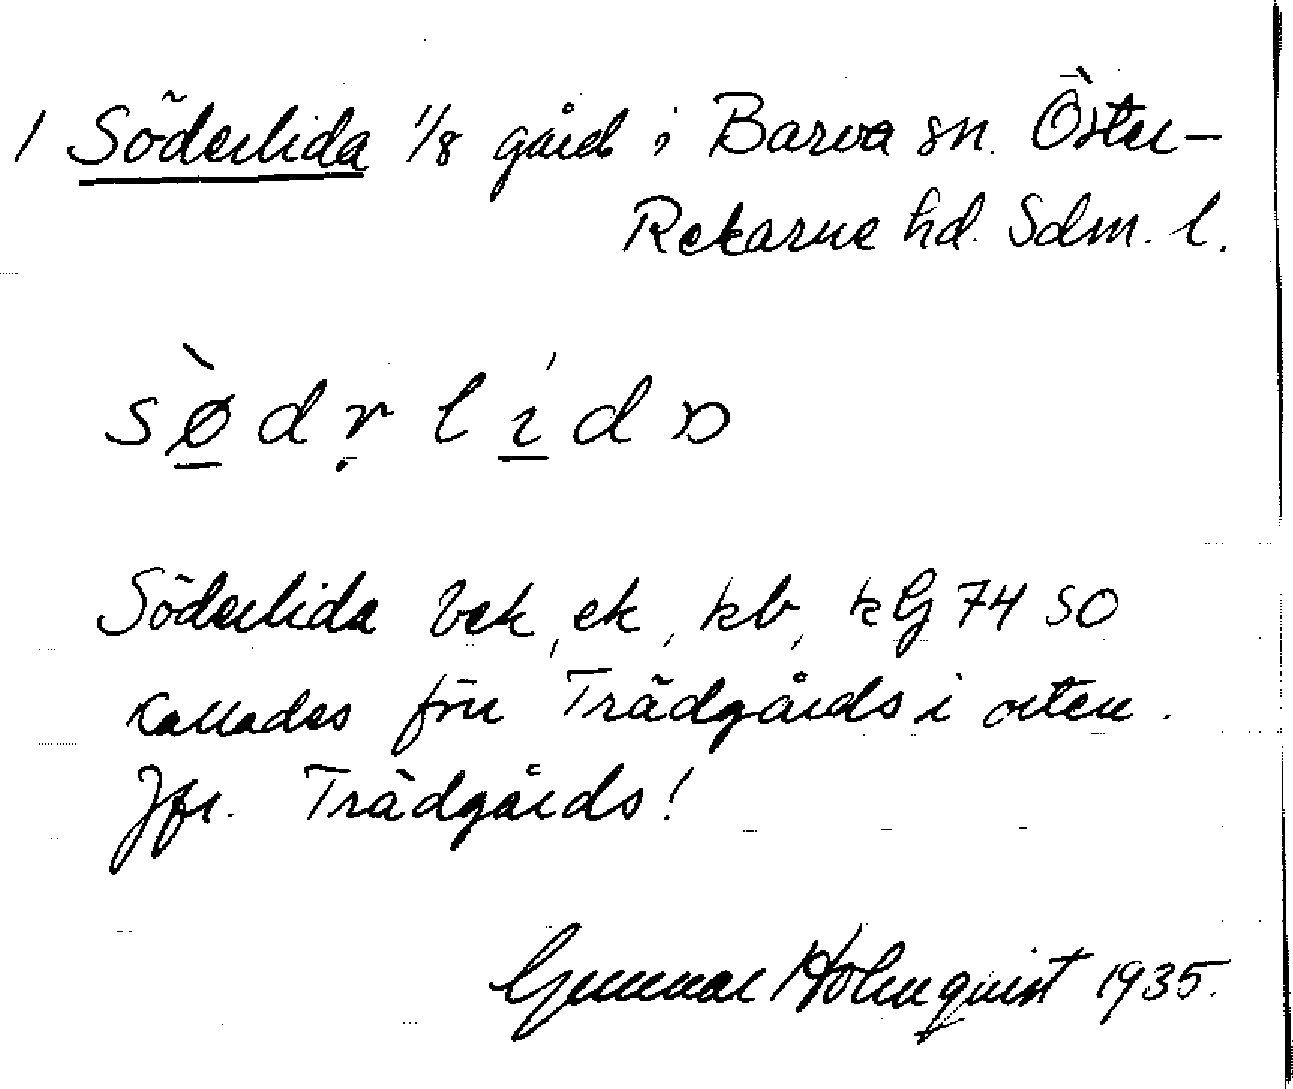 1 Söderlida 1/8 gård i Barva sn. Öster-
Rekarne hd. Sdm. l.
sø̀dṛlída
Söderlida bek, ek, kb, kG 74 SO
kallades förr Trädgårds i orten.
Jfr. Trädgårds!
Gunnar Holmquist 1935.